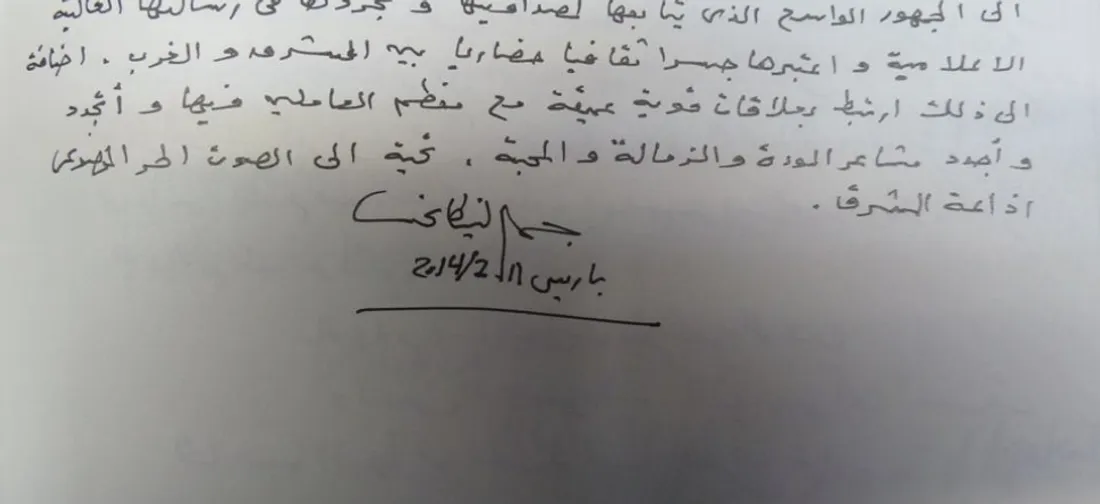 الى الجمهور الواسع الذى يتابعها لصداقيتها و تجردها فى رسالتها العالية
الاعلامية و اعتبرها جسرا ثقافيا حضاريا بين المشرق و الغرب . اضافة
الى ذلك ارتبط بعلاقات قوية عميقة مع معظم العاملين فيها و أتجدد
و أجدد مشاعر المودة والزمالة و المحبة . تحية الى الصوت الحر
اذاعة الشرق .
باريس 2014/2/11